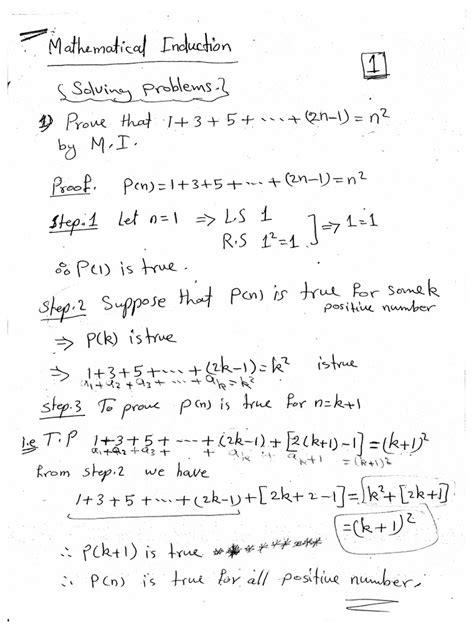 Mathematical Induction
1
{Solving problems.}
1) Prove that 1+3+5+ --- +(2n-1) = n²
by M.I.
Proof. P(n)=1+3+5+---+(2n-1)=n²
Step.1 Let n=1 ⇒ L.S 1
R.S 1²=1 ] ⇒ 1=1
∴ P(1) is true.
Step.2 Suppose that P(n) is true for some k
positive number
⇒ P(k) is true
⇒ 1+3+5+---+(2k-1)=k² is true
a₁+a₂+a₃+ --- +aₖ=k²
Step.3 To prove P(n) is true for n=k+1
i.e T.P 1+3+5+ --- +(2k-1)+[2(k+1)-1]=(k+1)²
a₁+a₂+a₃+ --- + aₖ + aₖ₊₁ =(k+1)²
from step.2 we have
1+3+5+---+(2k-1)+[2k+2-1]=k²+[2k+1]
=(k+1)²
∴ P(k+1) is true
∴ P(n) is true for all positive number.